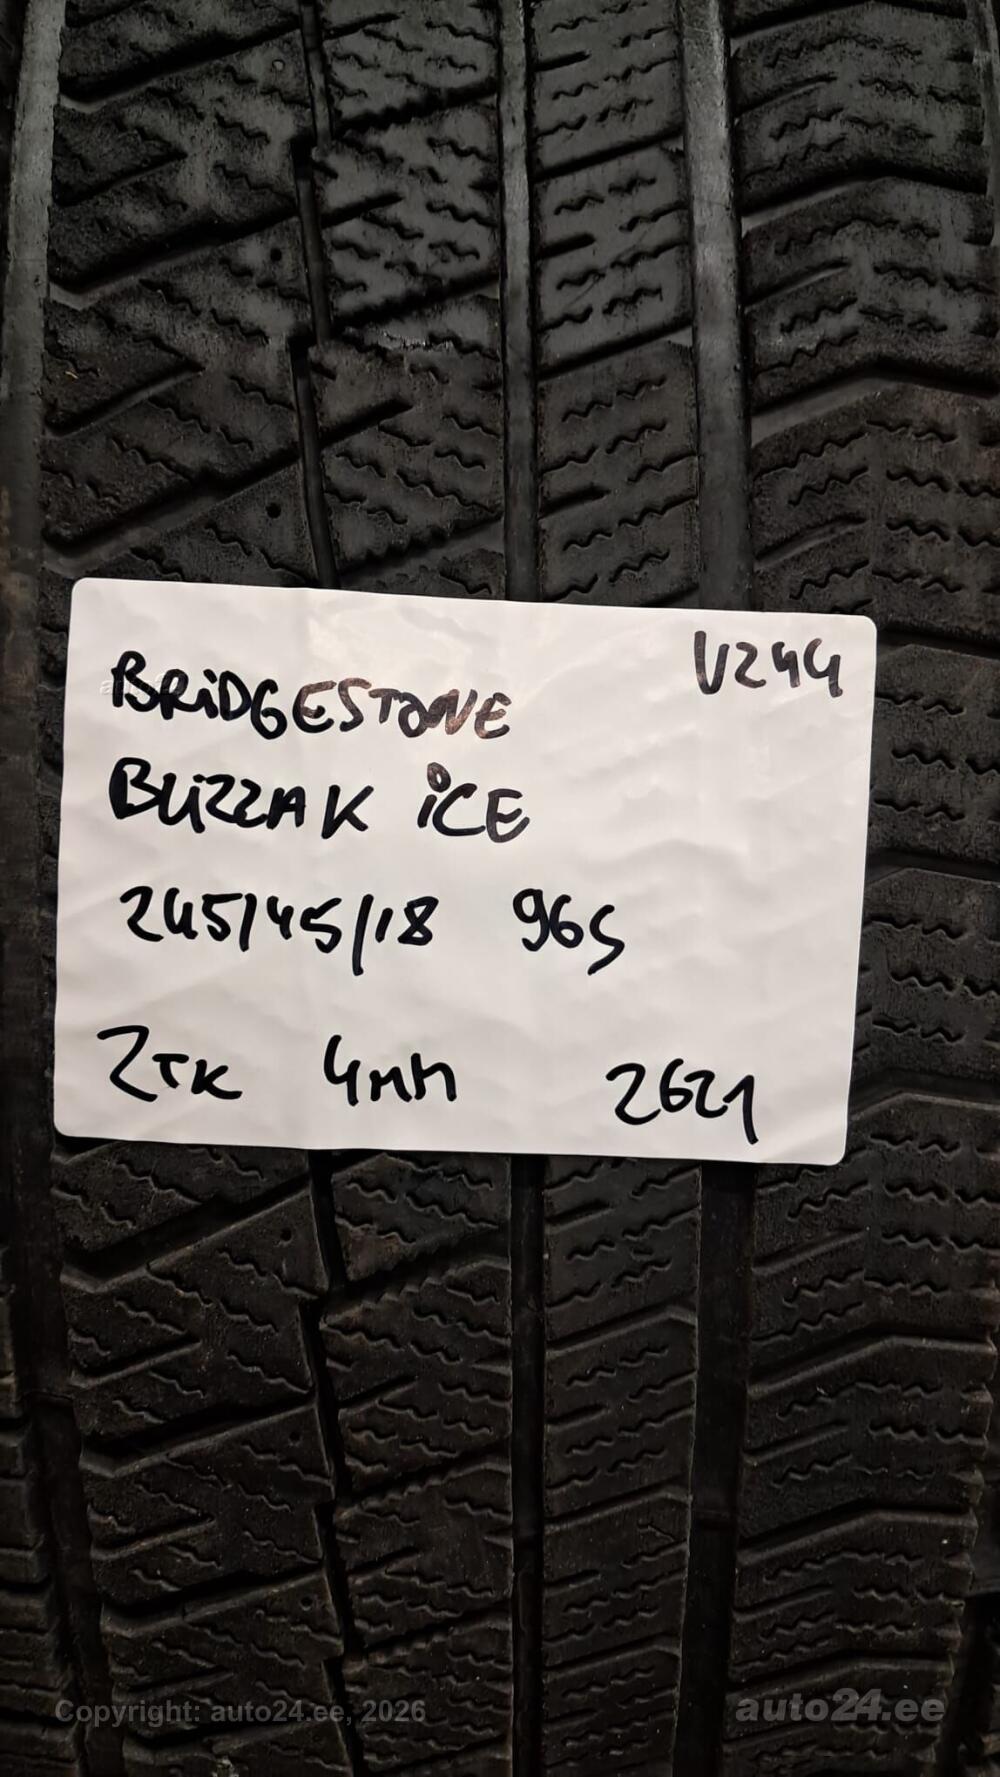 V244
BRiDGESTONE
BLiZZAK iCE
245/45/18 96S
2TK 4mm 2621
Copyright: auto24.ee, 2026
auto24.ee